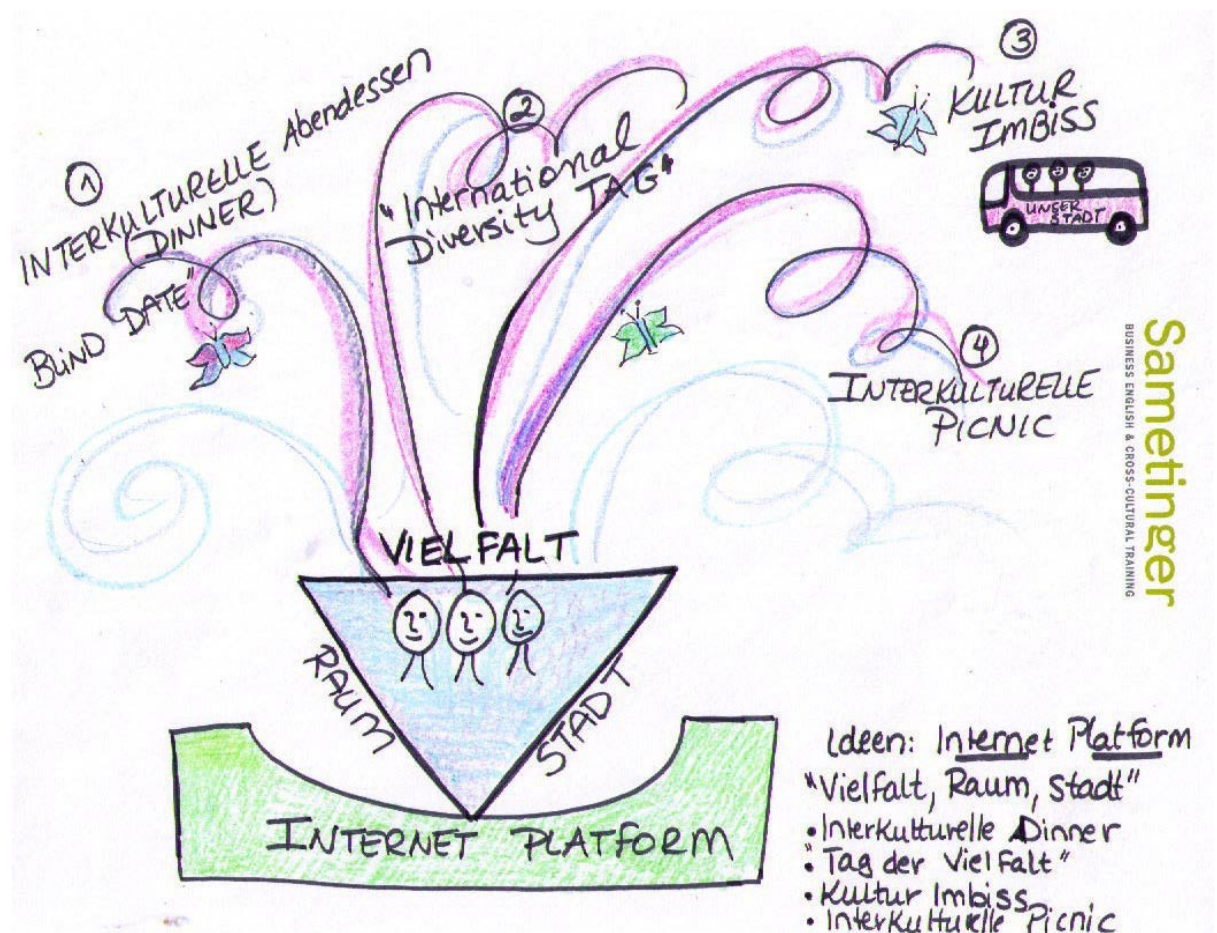 ①
INTERKULTURELLE Abendessen
(DINNER)
BLIND DATE"
②
"International
Diversity TAG"
③
KULTUR
IMBISS
UNSER
STADT
④
INTERKULTURELLE
PICNIC
Sametinger
BUSINESS ENGLISH & CROSS-CULTURAL TRAINING
VIELFALT
RAUM
STADT
INTERNET PLATFORM
Ideen: Internet Platform
"Vielfalt, Raum, Stadt"
• Interkulturelle Dinner
• "Tag der Vielfalt"
• Kultur Imbiss
• Interkulturelle Picnic